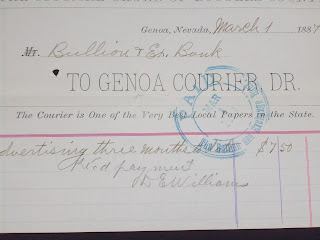 Genoa, Nevada, March 1 1887
Mr. Bullion & Ex. Bank
TO GENOA COURIER, DR.
The Courier is One of the Very Best Local Papers in the State.
advertising three months $7.50
Rec'd payment
D E Williams
PAID